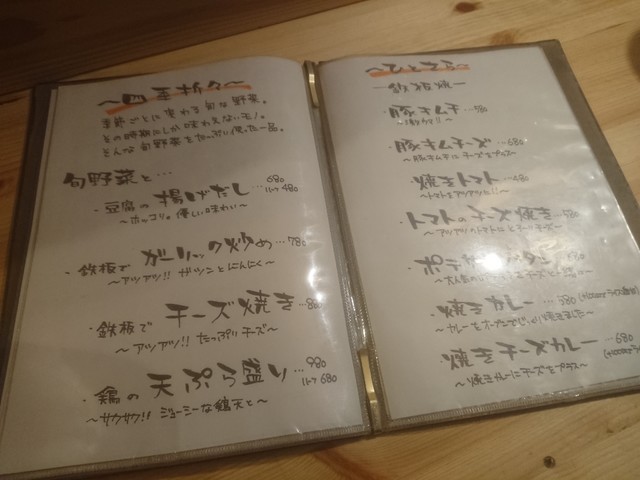 〜四季折々〜
季節ごとに変わる旬な野菜。
その時期にしか味わえないモノ。
そんな旬野菜をたっぷり使った一品。
旬野菜と…
・豆腐の揚げだし…680
ハーフ480
〜ホッコリ。優しい味わい〜
・鉄板でガーリックの炒め…780
〜アツアツ!!ガツンとにんにく〜
・鉄板でチーズ焼き…880
〜アツアツ!!たっぷりチーズ〜
・鶏の天ぷら盛り…980
ハーフ680
〜サクサク!!ジューシーな鶏天と〜
〜ひとさら〜
ー鉄板焼ー
・豚キムチ…580
・豚キムチーズ…680
〜豚キムチにチーズをプラス〜
・焼きトマト…480
〜トマトをアツアツに!!〜
・トマトのチーズ焼き
〜アツアツトマトにとろ〜りチーズ〜
・焼きカレー…780
・焼きチーズカレー
〜焼きカレーにチーズをプラス〜